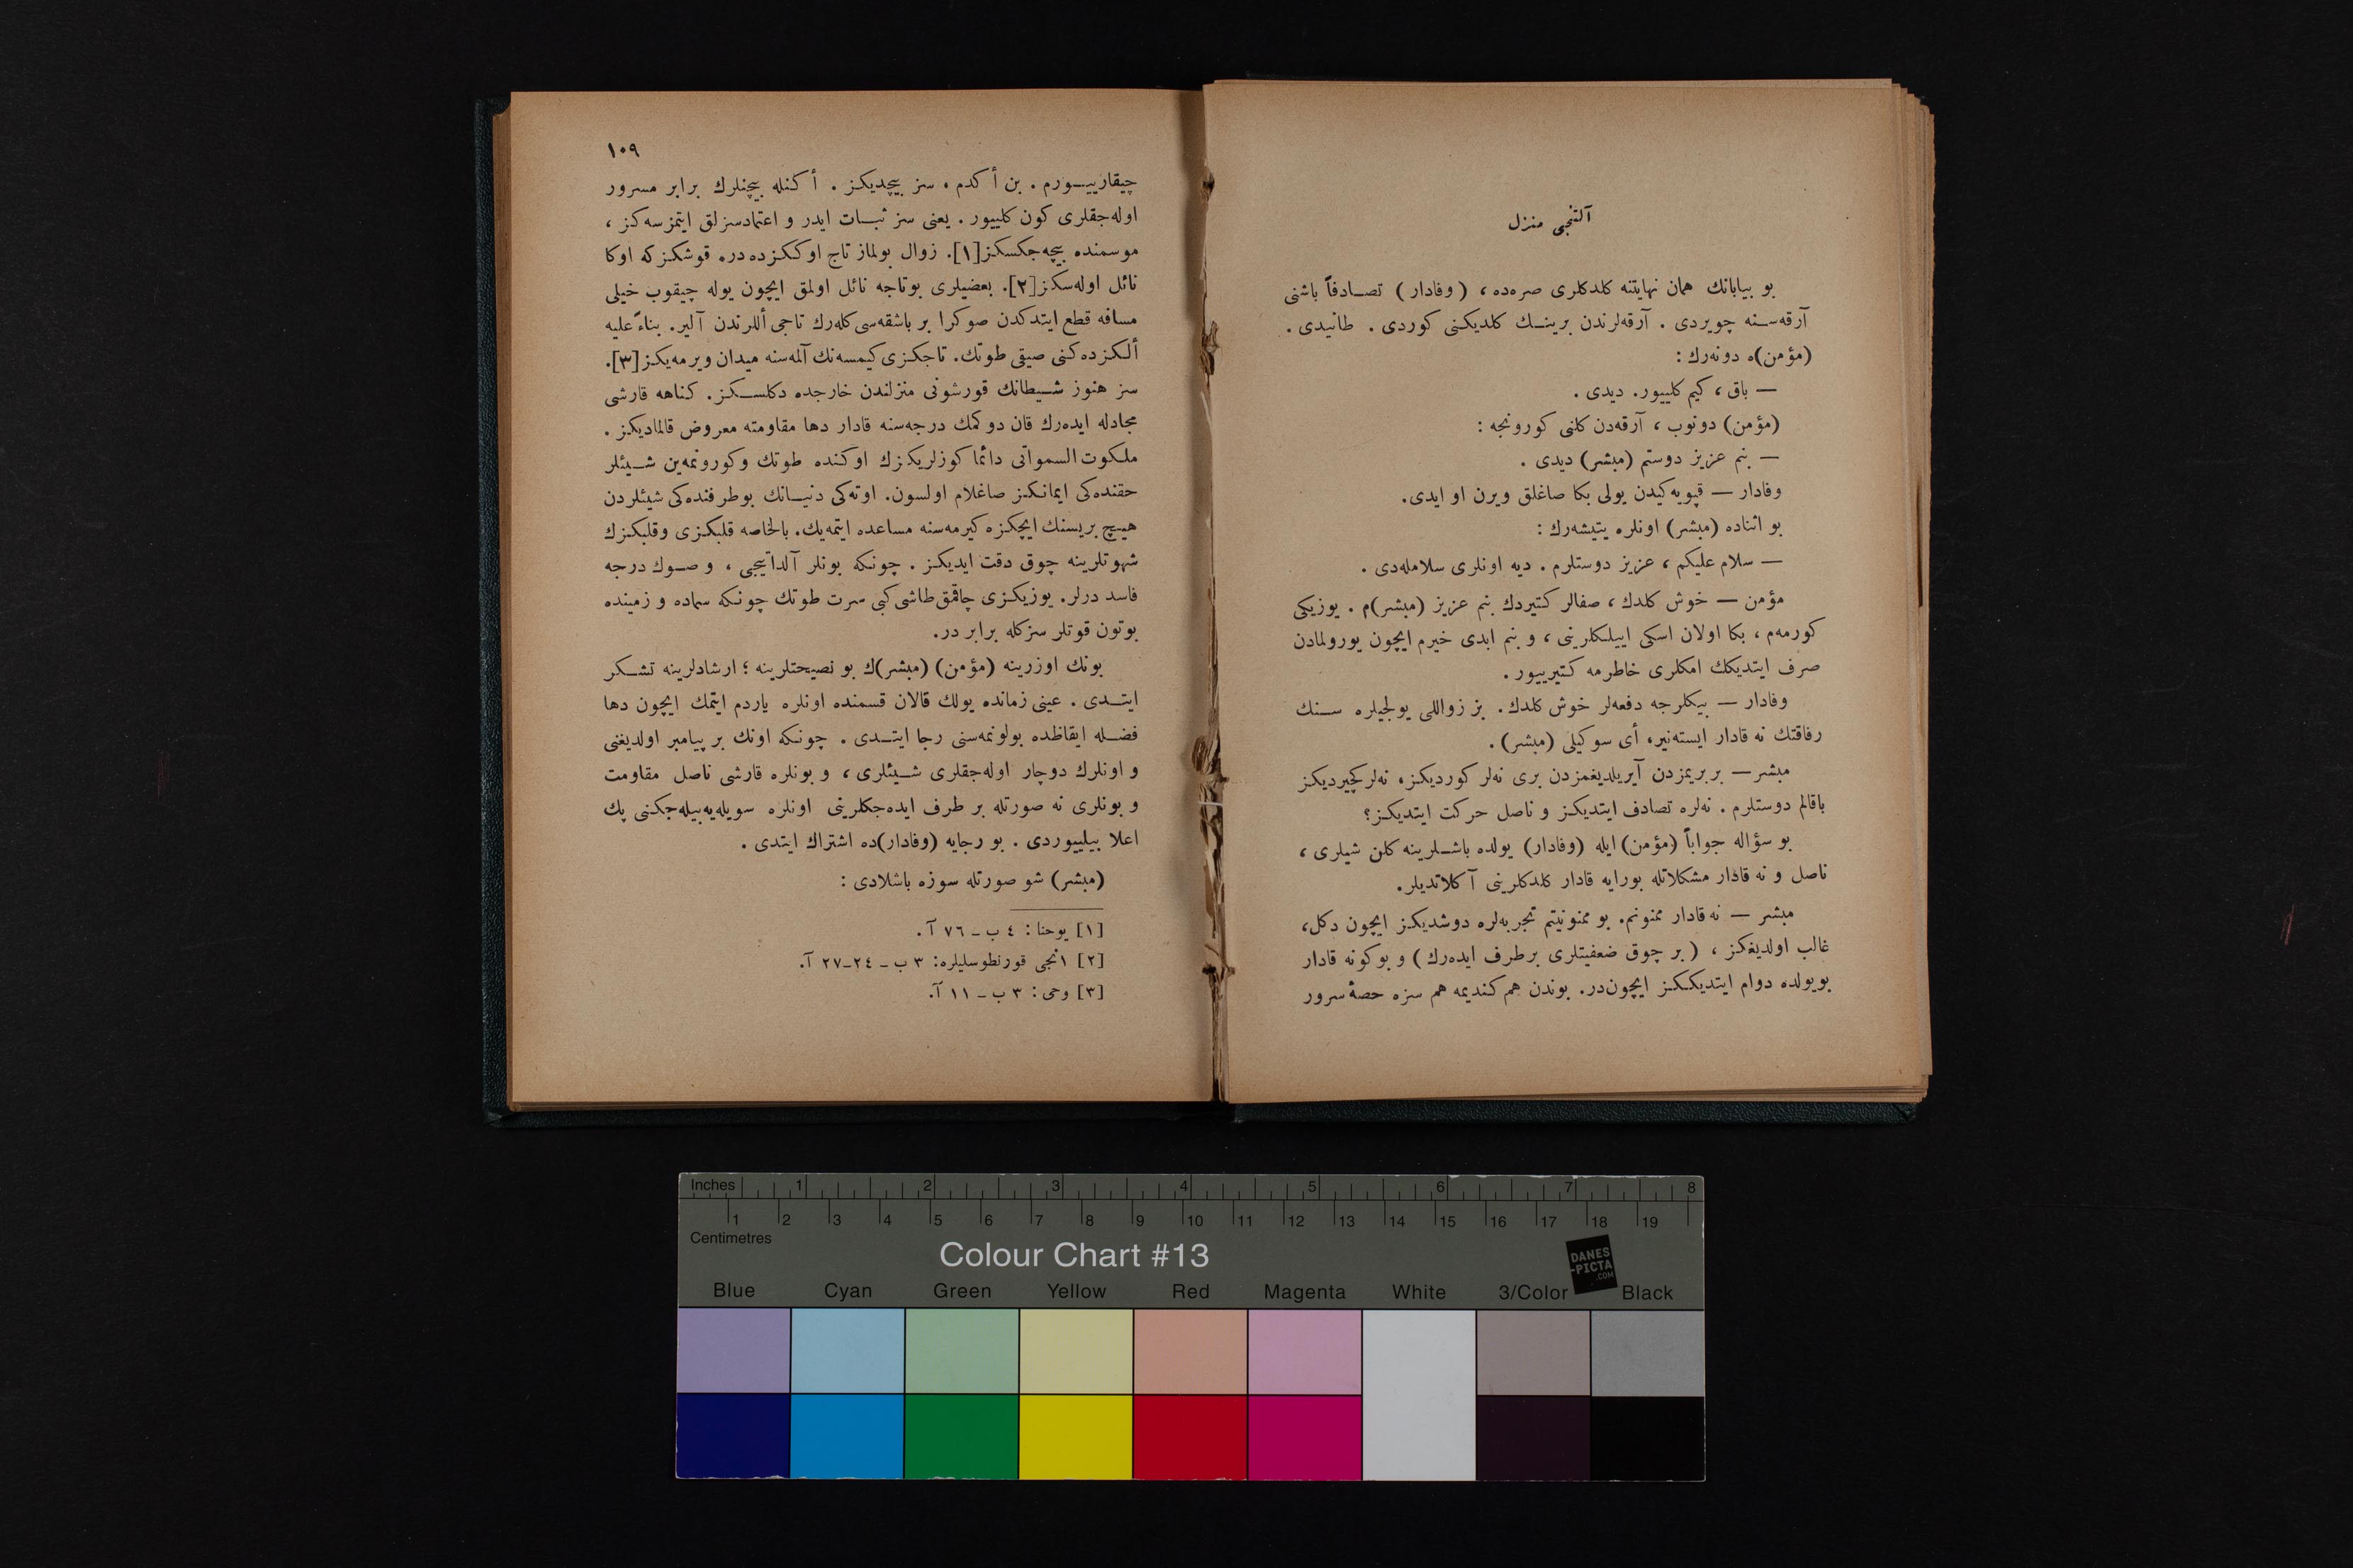 آلتنجی منزل
بو بیابانك همان نهایتنه كلدكلری صره‌ده ، ( وفادار ) تصـادفاً باشنی
آرقه‌سـنه چویردی . آرقه‌لرندن برینـك كلدیكنی كوردی . طانیدی .
(مؤمن)ه دونه‌رك :
— باق ، كیم كلییور. دیدی .
(مؤمن) دونوب ، آرقه‌دن كلنی كورونجه :
— بنم عزیز دوستم (مبشر) دیدی .
وفادار — قپویه كیدن یولی بكا صاغلق ویرن او ایدی.
بو اثناده (مبشر) اونلره یتیشه‌رك :
— سلام علیكم ، عزیز دوستلرم . دیه اونلری سلامله‌دی .
مؤمن — خوش كلدك ، صفالر كتیردك بنم عزیز (مبشر)م . یوزیكی
كورمه‌م ، بكا اولان اسكی اییلكلرینی ، و بنم ابدی خیرم ایچون یورولمادن
صرف ایتدیكك امكلری خاطرمه كتیرییور .
وفادار — بیكلرجه دفعه‌لر خوش كلدك. بز زواللی یولجیلره سـنك
رفاقتك نه قادار ایسته‌نیر، أی سوكیلی (مبشر) .
مبشر — بربریمزدن آیریلدیغمزدن بری نه‌لر كوردیكز، نه‌لر كچیردیكز
باقالم دوستلرم . نه‌لره تصادف ایتدیكز و ناصل حركت ایتدیكز؟
بو سؤاله جواباً (مؤمن) ایله (وفادار) یولده باشـلرینه كلن شیلری ،
ناصل و نه قادار مشكلاتله بورایه قادار كلدكلرینی آكلاتدیلر.
مبشر — نه قادار ممنونم. بو ممنونیتم تجربه‌لره دوشدیكز ایچون دكل،
غالب اولدیغكز ، ( بر چوق ضعفیتلری برطرف ایده‌رك ) و بوكونه قادار
بو یولده دوام ایتدیككز ایچون‌در. بوندن هم كندیمه هم سزه حصهٔ سرور
١٠٩
چیقارییـورم . بن أكدم ، سز بیچدیكز . أكنله بیچنلرك برابر مسرور
اوله‌جقلری كون كلییور . یعنی سز ثبـات ایدر و اعتمادسزلق ایتمزسه‌كز ،
موسمنده بیچه‌جكسكز[١]. زوال بولماز تاج اوككزده در. قوشكز كه اوكا
نائل اوله‌سكز[٢]. بعضیلری بوتاجه نائل اولمق ایچون یوله چیقوب خیلی
مسافه قطع ایتدكدن صوكرا بر باشقه‌سی كله‌رك تاجی أللرندن آلیر. بناءً علیه
ألكزده‌كنی صیقی طوتك. تاجكزی كیمسه‌نك آلمه‌سنه میدان ویرمه‌یكز[٣].
سز هنوز شـیطانك قورشونی منزلندن خارجده دكلسـكز. كناهه قارشی
مجادله ایده‌رك قان دوكمك درجه‌سنه قادار دها مقاومته معروض قالمادیكز .
ملكوت السمواتی دائما كوزلریكزك اوكنده طوتك وكورونمه‌ین شـیئلر
حقنده‌كی ایمانكز صاغلام اولسون. اوته‌كی دنیـانك بوطرفنده‌كی شیئلردن
هیـچ بریسنك ایچكزه كیرمه‌سنه مساعده ایتمه‌یك. بالخاصه قلبكزی وقلبكزك
شهوتلرینه چوق دقت ایدیكز . چونكه بونلر آلداتیجی ، و صـوك درجه
فاسد درلر. یوزیكزی چاقمق‌طاشی كبی سرت طوتك چونكه سماده و زمینده
بوتون قوتلر سزكله برابر در.
بونك اوزرینه (مؤمن) (مبشر)ك بو نصیحتلرینه ؛ ارشادلرینه تشـكر
ایتـدی . عینی زمانده یولك قالان قسمنده اونلره یاردم ایتمك ایچون دها
فضـله ایقاظده بولونمه‌سنی رجا ایتـدی . چونكه اونك بر پیامبر اولدیغنی
و اونلرك دوچار اوله‌جقلری شـیئلری ، و بونلره قارشی ناصل مقاومت
و بونلری نه صورتله بر طرف ایده‌جكلرینی اونلره سویله‌یه‌بیله‌جكنی پك
اعلا بیلییوردی . بو رجایه (وفادار)ده اشتراك ایتدی .
(مبشر) شو صورتله سوزه باشلادی :
[١] یوحنا : ٤ ب ـ ٧٦ آ .
[٢] ١نجی قورنطوسلیلره: ٣ ب ـ ٢٤ـ٢٧ آ.
[٣] وحی : ٣ ب ـ ١١ آ.
Inches 1 2 3 4 5 6 7 8
1 2 3 4 5 6 7 8 9 10 11 12 13 14 15 16 17 18 19
Centimetres
Colour Chart #13
DANES
-PICTA
.COM
Blue Cyan Green Yellow Red Magenta White 3/Color Black